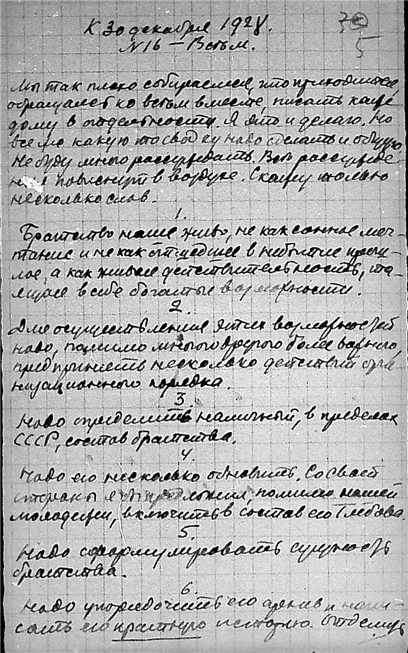 К 30 декабря 1928.
№ 16 – Всѣм.
Мы так плохо собираемся, что приходится,
обращаясь ко всѣм вместе, писать каж-
дому в отдѣльности. Я это и делаю. Но
все же какую то сводку надо сделать и общую.
Не буду много рассуждать. Всѣ рассужде-
ния повиснут в воздухе. Скажу только
несколько слов.
1.
Братство наше живо, не как сонное меч-
тание и не как отшедшее в небытие прош-
лое, а как живая действительность, та-
ящая в себе богатые возможности.
2.
Для осуществления этих возможностей
надо, помимо многого другого более важного,
предпринять несколько действий орга-
низационного порядка.
3.
Надо определить наличный, в пределах
СССР, состав братства.
4.
Надо его несколько обновить. Со своей
стороны я бы предложил, помимо нашей
молодежи, включить в состав его Глебова.
5.
Надо сформулировать сущность
братства.
6.
Надо упорядочить его архив и напи-
сать его краткую историю.